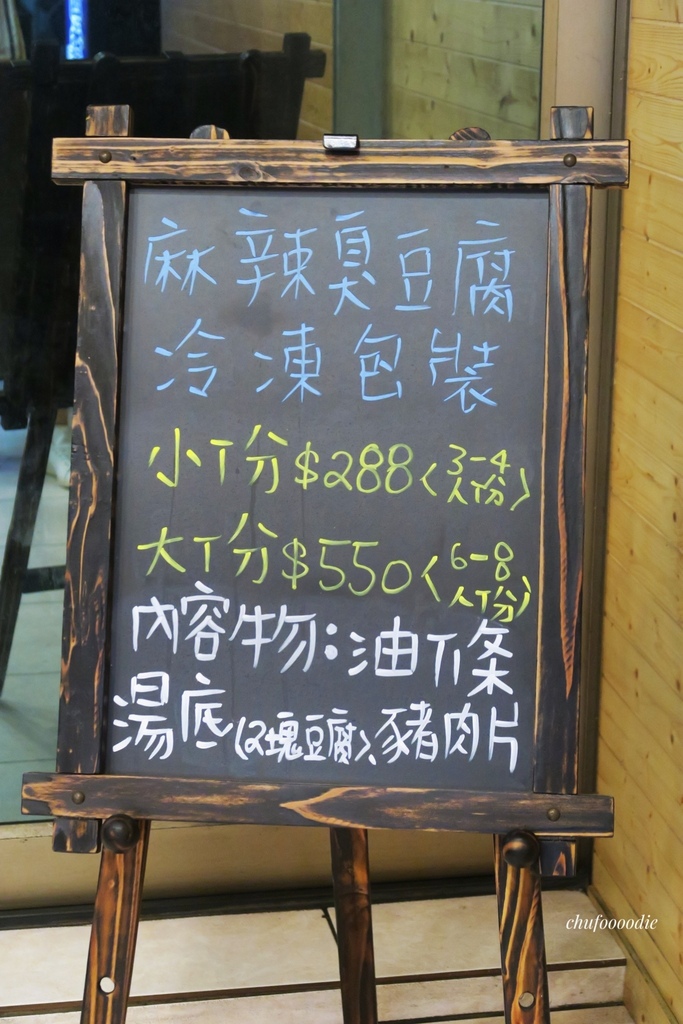 麻辣臭豆腐
冷凍包裝
小份$288(3-4人份)
大份$550(6-8人份)
內容物:油條
湯底(2塊豆腐)、豬肉片
chufoooodie